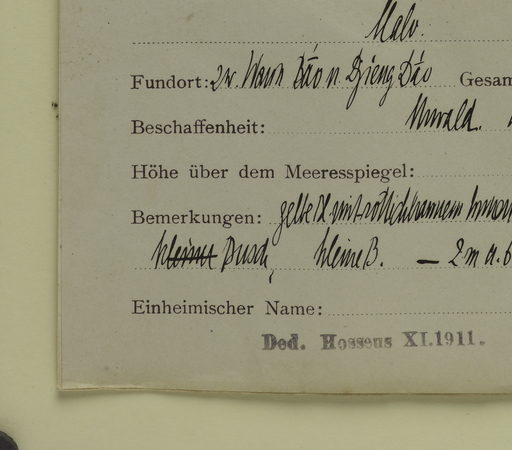 Malv.
Fundort: zw. Wang Dáo u. Djieng Dáo Gesam
Beschaffenheit: Urwald.
Höhe über dem Meeresspiegel:
Bemerkungen: gelbe Bl. mit rötlichbraunem
Busch, kleine B. — 2 m a. 6
Einheimischer Name:
Ded. Hosseus XI.1911.